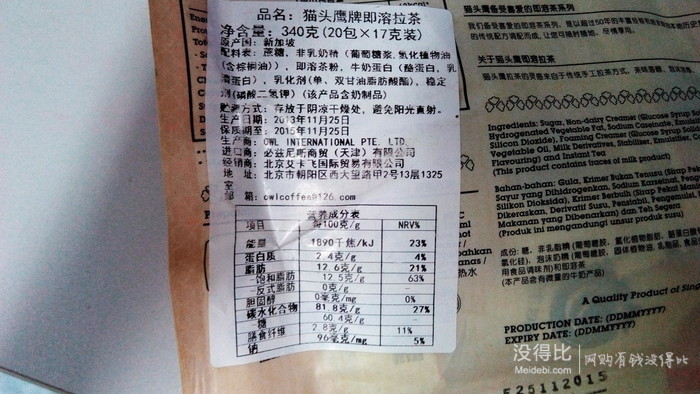 品名：猫头鹰牌即溶拉茶
净含量：340克(20包×17克装)
原产国：新加坡
配料表：蔗糖、非乳奶精（葡萄糖浆,氢化植物油
(含棕榈油)）、即溶茶粉、牛奶蛋白（酪蛋白、乳
清蛋白）、乳化剂(单、双甘油脂肪酸酯)、稳定
剂(磷酸二氢钾)（该产品含奶制品）
贮藏方式：存放于阴凉干燥处，避免阳光直射。
生产日期：2013年11月25日
保质期至：2015年11月25日
生产商：OWL INTERNATIONAL PTE. LTD.
进口商：必兹尼斯商贸（天津）有限公司
经销商：北京艾卡飞国际贸易有限公司
地 址：北京市朝阳区西大望路甲2号13层1325
室
邮 箱：owlcoffee@126.com
营养成分表
项目 每100克/g NRV%
能量 1890千焦/kJ 23%
蛋白质 2.4克/g 4%
脂肪 12.6克/g 21%
-饱和脂肪 12.5克/g 63%
-反式脂肪 0克/g
胆固醇 0毫克/mg 0%
碳水化合物 81.8克/g 27%
-糖 60.4克/g
膳食纤维 2.8克/g 11%
钠 96毫克/mg 5%
猫头鹰备受喜爱的即溶茶系列
关于猫头鹰即溶拉茶
Ingredients: Sugar, Non-dairy Creamer (Glucose Syrup
Hydrogenated Vegetable Fat, Sodium Caseinate,
Silicon Dioxide), Foaming Creamer (Glucose Syrup
Vegetable Oil, Milk Derivatives, Stabiliser,
Flavouring) and Instant Tea
(This product contains of milk product)
Bahan-bahan: Gula, Krimer Bukan Tenusu (Sirap
Sayur yang Dihidrogenkan, Sodium Kaseinat,
Silikon Dioksida), Krimer Berbuih (Sirap Pekat
Dikeraskan, Derivatif Susu, Penstabil,
Makanan yang Dibenarkan) dan Teh Segera
(Produk ini mengandungi unsur produk susu)
(本产品含有微量的牛奶产品)
A Quality Product of
PRODUCTION DATE: (DDMMYYYY)
EXPIRY DATE: (DDMMYYYY)
25112015
没得比
Meidebi.com
网购有钱没得比